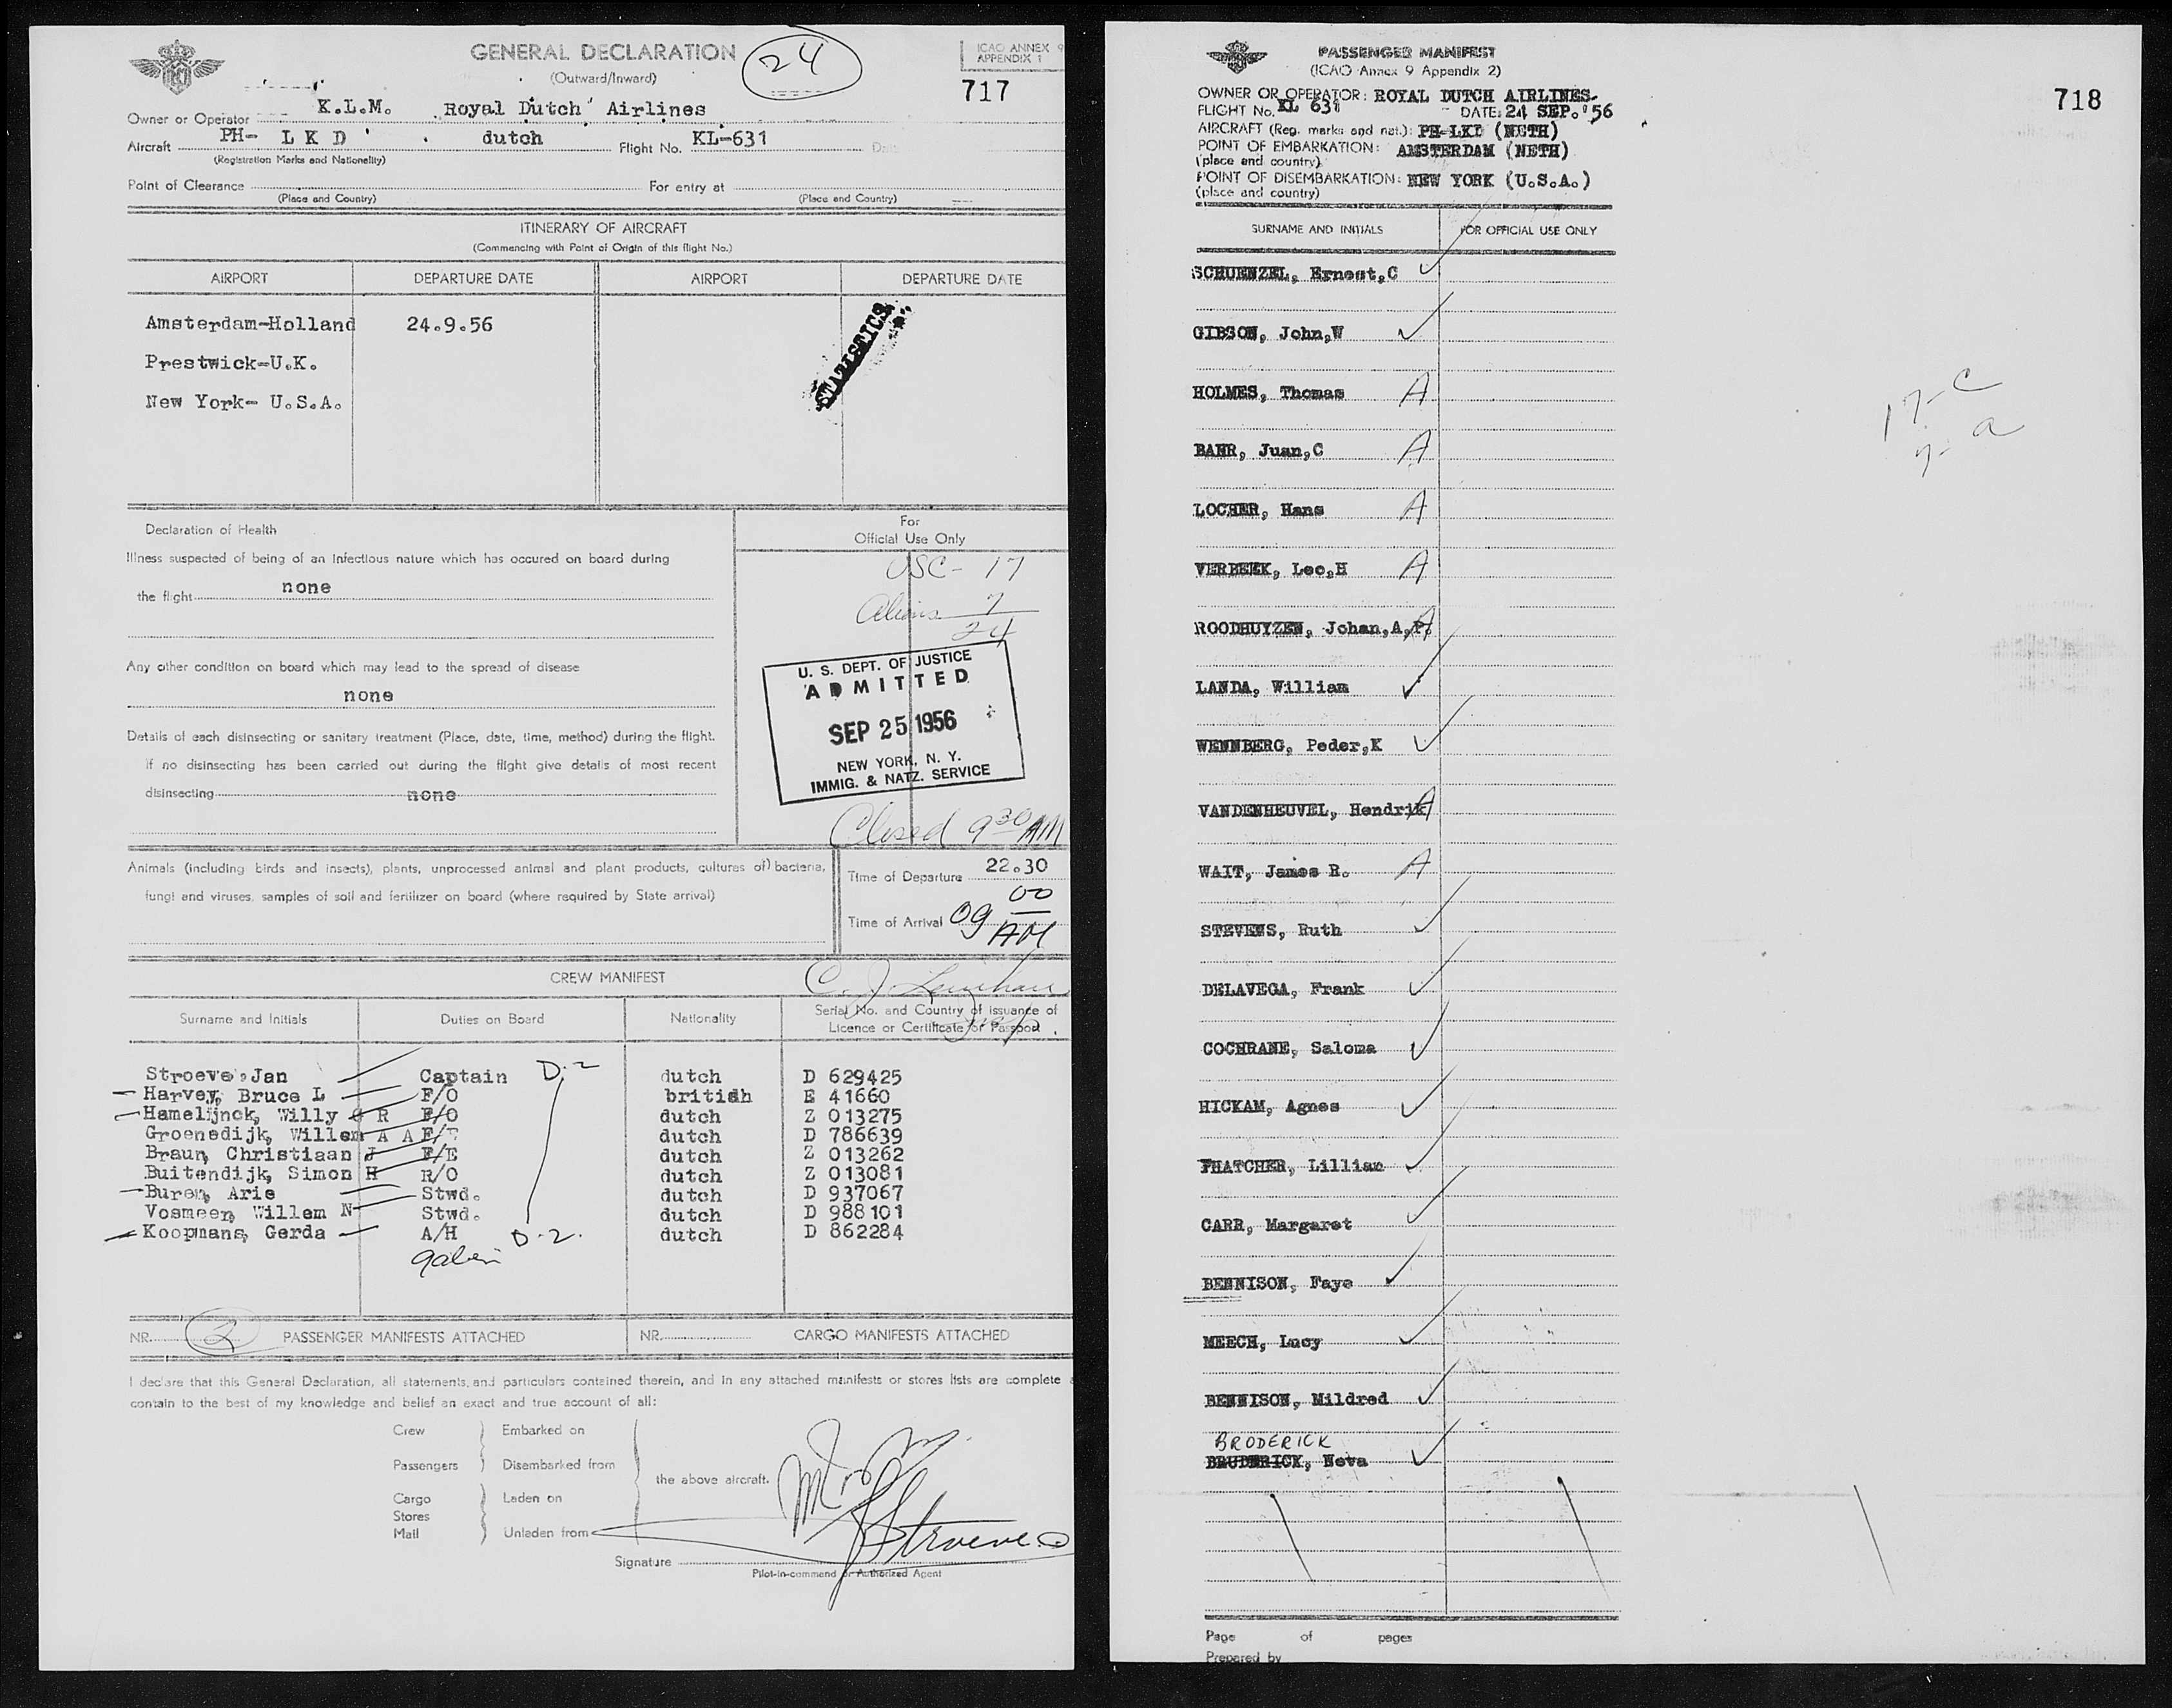 GENERAL DECLARATION
(Outward/Inward)
24
ICAO ANNEX 9
APPENDIX 1
717
Owner or Operator K.L.M. Royal Dutch Airlines
Aircraft PH- L K D dutch Flight No. KL-631
(Registration Marks and Nationality)
Point of Clearance For entry at
(Place and Country) (Place and Country)
ITINERARY OF AIRCRAFT
(Commencing with Point of Origin of this flight No.)
AIRPORT DEPARTURE DATE AIRPORT DEPARTURE DATE
Amsterdam-Holland 24.9.56
Prestwick-U.K.
New York- U.S.A.
STATISTICS
Declaration of Health
Illness suspected of being of an infectious nature which has occured on board during
the flight none
Any other condition on board which may lead to the spread of disease
none
Details of each disinsecting or sanitary treatment (Place, date, time, method) during the flight.
if no disinsecting has been carried out during the flight give details of most recent
disinsecting none
For
Official Use Only
USC- 17
Aliens 7
24
U. S. DEPT. OF JUSTICE
ADMITTED
SEP 25 1956
NEW YORK, N. Y.
IMMIG. & NATZ. SERVICE
Closed 9 30 AM
Animals (including birds and insects), plants, unprocessed animal and plant products, cultures of) bacteria,
fungi and viruses, samples of soil and fertilizer on board (where required by State arrival)
Time of Departure 22.30
Time of Arrival 09 00 AM
CREW MANIFEST
Surname and Initials Duties on Board Nationality Serial No. and Country of issuance of
Licence or Certificate or Passport.
Stroeve, Jan Captain D-2 dutch D 629425
Harvey, Bruce L F/O british E 41660
Hamelijnck, Willy G R F/O dutch Z 013275
Groenedijk, Willem A A F/E dutch D 786639
Braun, Christiaan J F/E dutch Z 013262
Buitendijk, Simon H R/O dutch Z 013081
Buren, Arie Stwd. dutch D 937067
Vosmeer, Willem N Stwd. dutch D 988101
Koopmans, Gerda A/H D-2. dutch D 862284
NR. 2 PASSENGER MANIFESTS ATTACHED NR. CARGO MANIFESTS ATTACHED
I declare that this General Declaration, all statements, and particulars contained therein, and in any attached manifests or stores lists are complete
contain to the best of my knowledge and belief an exact and true account of all:
Crew Embarked on
Passengers Disembarked from
the above aircraft.
Cargo Laden on
Stores
Mail Unladen from
JStroeve
Signature
Pilot-in-commend or Authorized Agent
PASSENGER MANIFEST
(ICAO Annex 9 Appendix 2)
718
OWNER OR OPERATOR: ROYAL DUTCH AIRLINES.
FLIGHT No. KL 631 DATE: 24 SEP. '56
AIRCRAFT (Reg. marks and nat.): PH-LKD (NETH)
POINT OF EMBARKATION: AMSTERDAM (NETH)
(place and country)
POINT OF DISEMBARKATION: NEW YORK (U.S.A.)
(place and country)
SURNAME AND INITIALS FOR OFFICIAL USE ONLY
SCHUENZEL, Ernest,C
GIBSON, John,W
HOLMES, Thomas A
BAHR, Juan,C A
LOCHER, Hans A
VERBEEK, Leo,H A
ROODHUYZEN, Johan,A,P. A
LANDA, William
WENNBERG, Peder,K
VANDENHEUVEL, Hendrik A
WAIT, James R. A
STEVENS, Ruth
DELAVEGA, Frank
COCHRANE, Saloma
HICKAM, Agnes
THATCHER, Lillian
CARR, Margaret
BENNISON, Faye
MEECH, Lucy
BENNISON, Mildred
BRODERICK
BRUDERICK, Neva
17- C
7- a
Page of pages
Prepared by